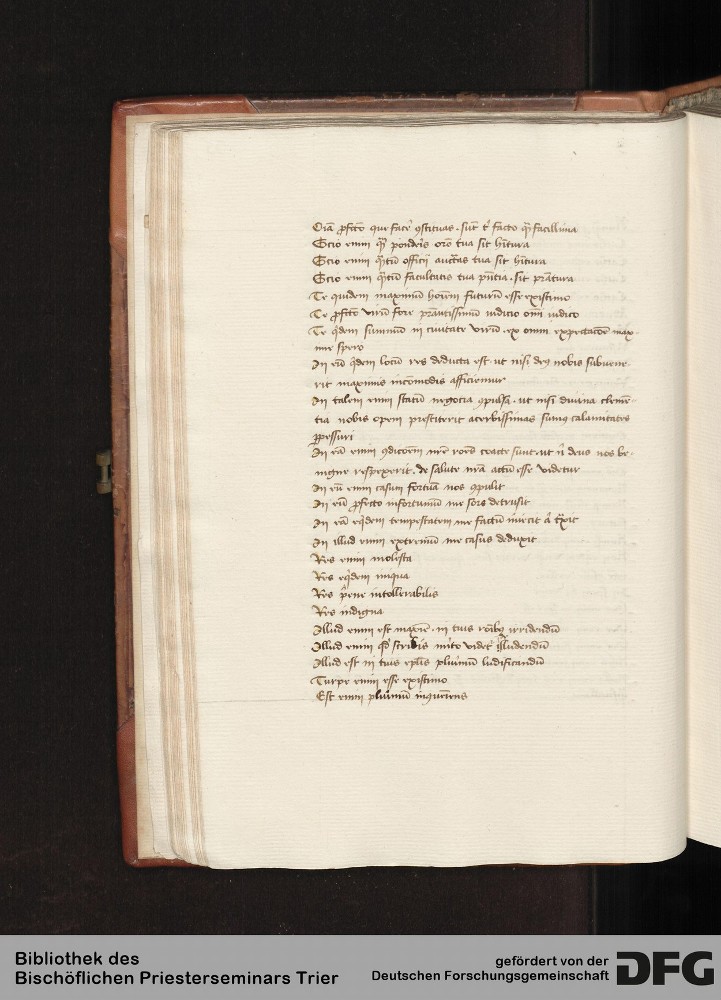 Oīa ꝓfecto que facē ꝯstituas · sūt t' facto qȝ facillima
Scio enim qȝ ponderis oro tua sit hitura
Scio enim qȝtū officij auctas tua sit hītura
Scio enim qȝtū facultatis tua pn̄tia · sit p̄stitura
Te quidem maximū hoīem futurū esse existimo
Te ꝓfecto virū fore p̄stātissimū iudicio om̄i iudico
Te qdem summū in ciuitate virū · ex omni expectacōe max
ime spero
In eū qdem locū res deducta est · ut nisi deꝰ nobis subuene
rit maximis incōmodis afficiemur
In talem enim statū negocia ꝯpulsa · ut nisi diuina clemē
tia nobis opem prestiterit acerbissimas sumꝰ calamitates
ꝑpessuri
In eā enim ꝯdicoēm nr̄e coacte sunt · ut n̄ deus nos be
nigne respexerit · de salute nr̄a actū esse videtur
In eū enim casum fortūa nos ꝯpulit
In eū ꝓfecto infortuniū me sors detrusit
In eā eqdem tempestatem me factū iniecit
In illud enim extremū me casus deduxit
Res enim molesta
Res eqdem iniqua
Res pene intollerabilis
Res indigna
Illud enim est · in tuis irridendū
Illud enim videt' illudendū
Illud est in tuis ep̄lis plurimū ludificandū
Turpe enim esse existimo
Est enim plurimū
Bibliothek des
Bischöflichen Priesterseminars Trier
gefördert von der
Deutschen Forschungsgemeinschaft
DFG